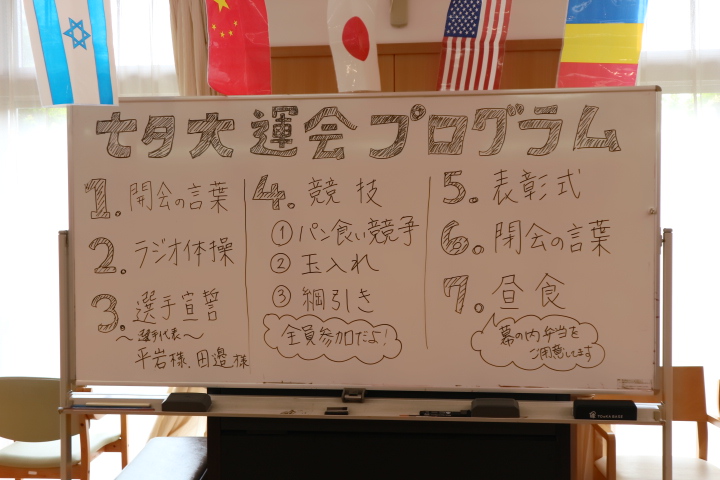 七夕大運会プログラム
1. 開会の言葉
2. ラジオ体操
3. 選手宣誓
〜選手代表〜
平岩様、田邉様
4. 競技
① パン食い競争
② 玉入れ
③ 綱引き
全員参加だよ!
5. 表彰式
6. 閉会の言葉
7. 昼食
幕の内弁当を
ご用意してます